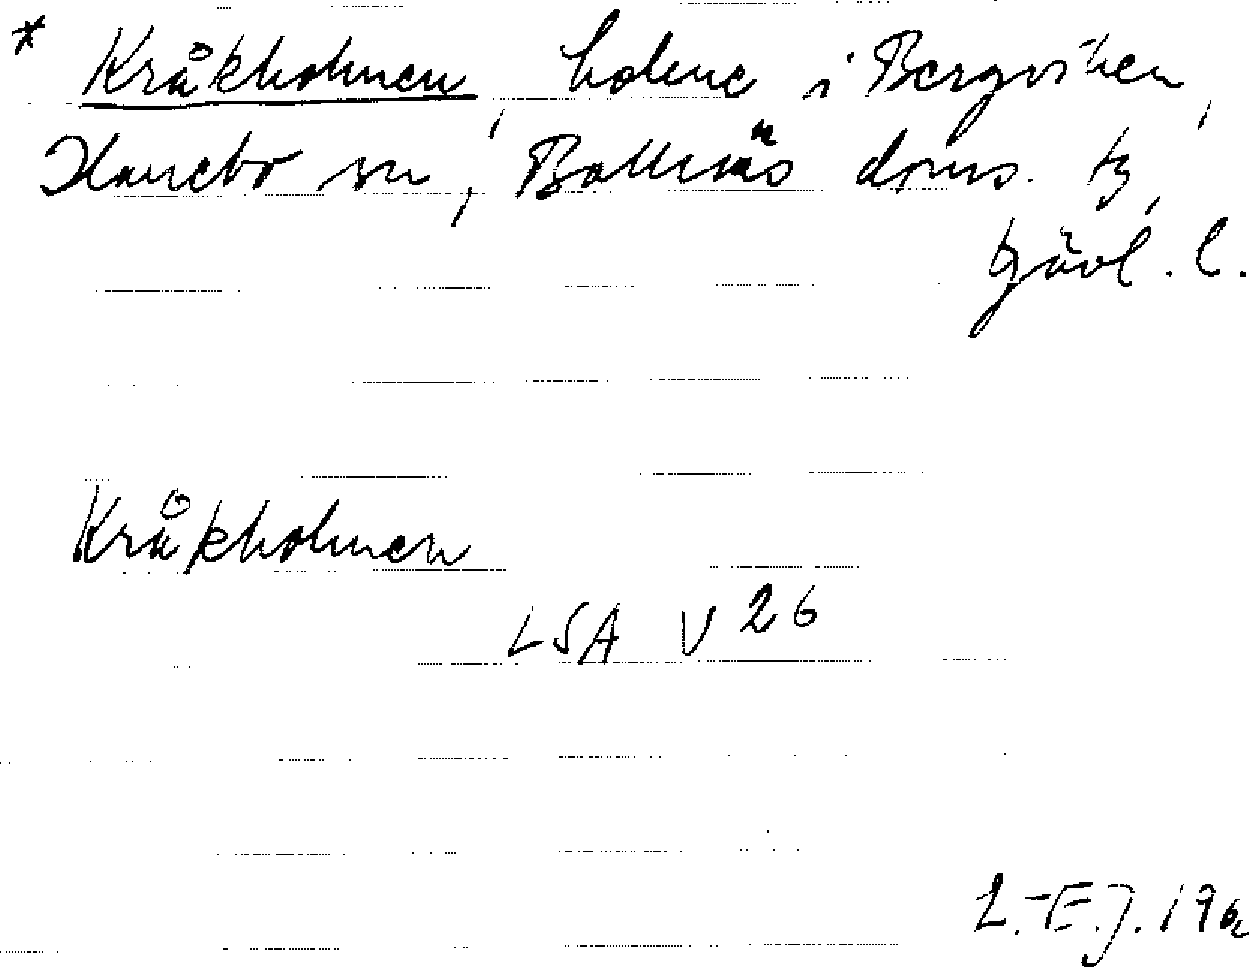 * Kråkholmen, holme i Bergviken,
Hanebo sn, Bollnäs doms. tg,
Gävl. l.
Kråkholmen
LSA V 26
L.-E.J. 196